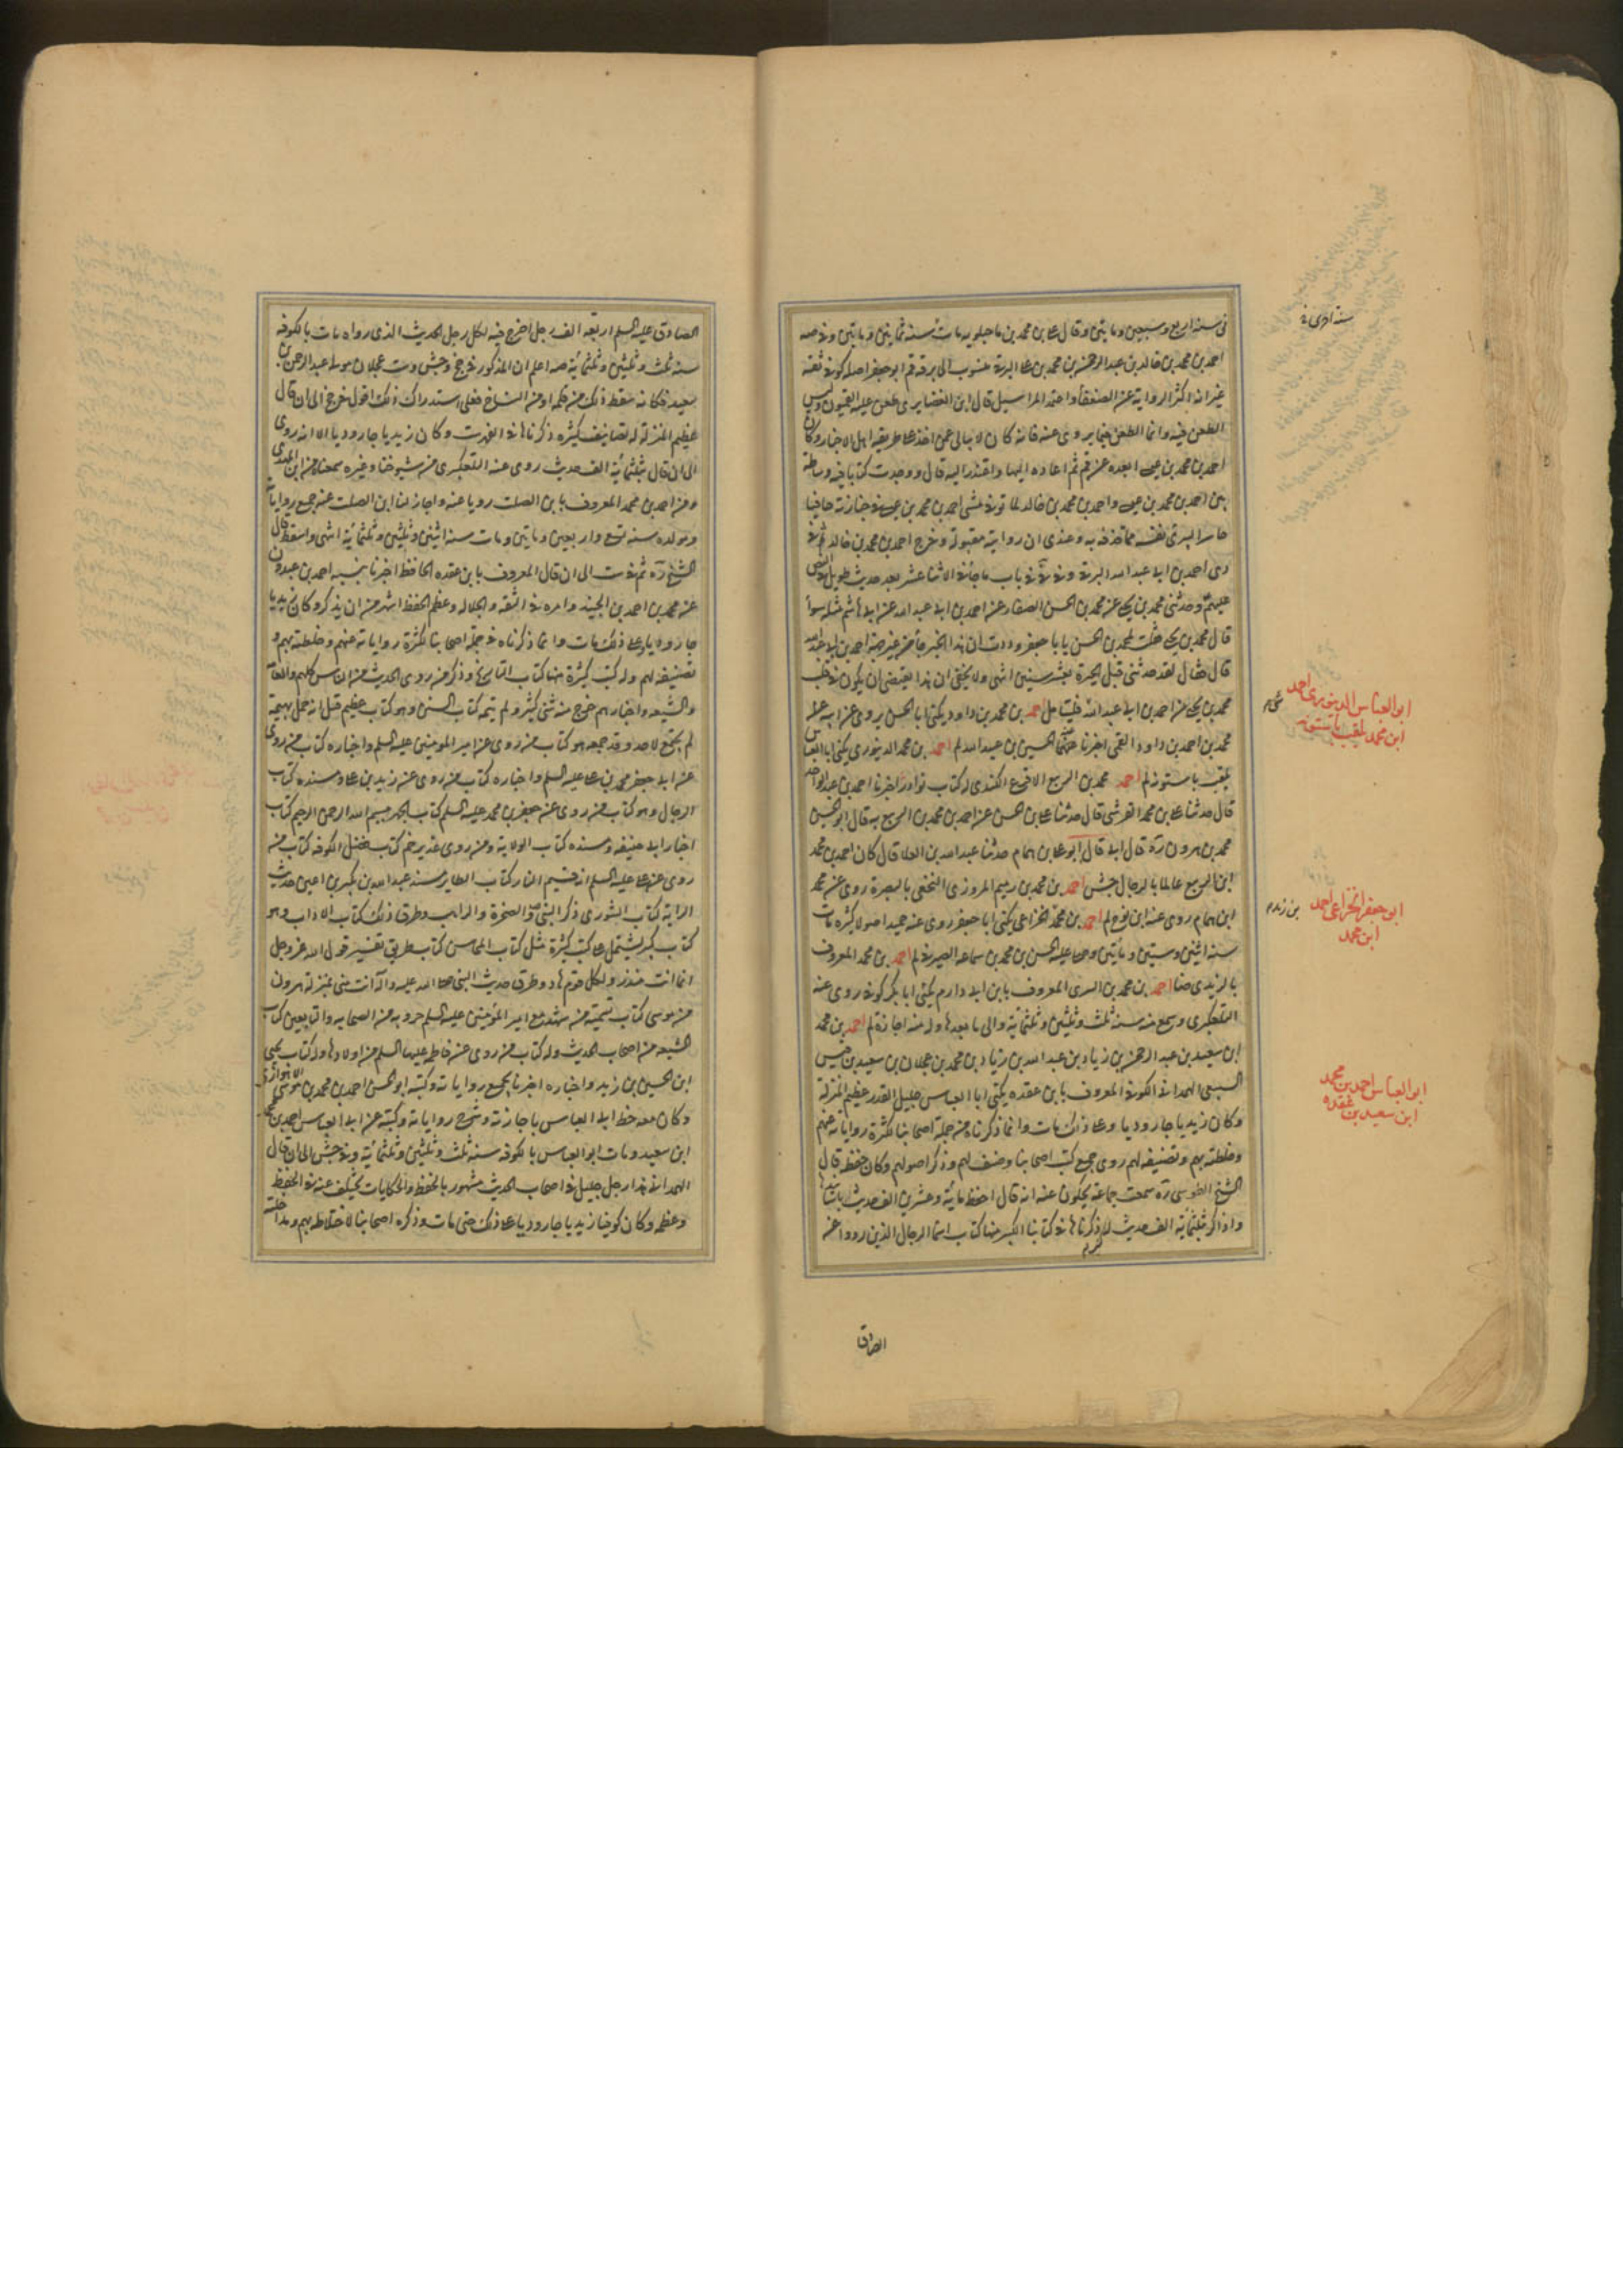 في سنة اربع وسبعين ومايتين وقال علي بن محمد بن ماجيلويه مات سنة ثمانين ومايتين وفي صه
احمد بن محمد بن خالد بن عبد الرحمن بن محمد بن علي البرقي منسوب الى برقة قم ابو جعفر اصله كوفي ثقة
غير انه اكثر الرواية عن الضعفاء واعتمد المراسيل قال ابن الغضايري طعن عليه القميون وليس
الطعن فيه وانما الطعن فيما يروي عنه فانه كان لا يبالي عمن اخذ على طريقة اهل الاخبار وكان
احمد بن محمد بن عيسى ابعده عن قم ثم اعاده اليها واعتذر اليه قال ووجدت كتابا فيه وساطة
بين احمد بن محمد بن عيسى واحمد بن محمد بن خالد لما توفي مشى احمد بن محمد بن عيسى في جنازته حافيا
حاسرا ليبرئ نفسه مما قذفه به وعندي ان روايته مقبولة وخرج احمد بن محمد بن خالد
احمد بن ابي عبد الله البرقي وفي في باب ما جاء في الاثنا عشر بعد حديث طويل
وحدثني محمد بن يحيى عن محمد بن الحسن الصفار عن احمد بن ابي عبد الله عن ابي هاشم مثله سواء
قال محمد بن يحيى فقلت لمحمد بن الحسن يا با جعفر وددت ان هذا الخبر جاء من غير جهة احمد بن ابي عبد الله
قال فقال لقد حدثني قبل الحيرة بعشر سنين انتهى ولا يخفى ان هذا يقتضي ان يكون في قلب
محمد بن يحيى من احمد بن ابي عبد الله فليتامل احمد بن محمد بن داود يكنى ابا الحسين يروي عن ابيه
محمد بن احمد بن داود القمي اخبرنا عنهما الحسين بن عبيد الله لم احمد بن محمد الدينوري يكنى ابا العباس
يلقب باستونه لم احمد بن محمد بن الربيع الاقرع الكندي له كتاب نوادر اخبرنا احمد بن عبد الواحد
قال حدثنا علي بن محمد القرشي قال حدثنا علي بن الحسن عن احمد بن محمد بن الربيع به قال ابو الحسين
محمد بن هرون ره قال ابي قال ابو علي بن همام حدثنا عبد الله بن العلا قال كان احمد بن محمد
ابن الربيع عالما بالرجال جش احمد بن محمد بن رميم المروزي النخعي بالبصرة روى عنه محمد
ابن همام روى عنه ابن نوح لم احمد بن محمد الخزاعي يكنى ابا جعفر روى عنه حميد اصولا كثيرة مات
سنة اثنين وستين ومائتين وصلى عليه الحسن بن محمد بن سماعه الصيرفي لم احمد بن محمد المعروف
بالزيدي ضا احمد بن محمد بن السري المعروف بابن ابي دارم يكنى ابا بكر كوفي روى عنه
التلعكبري وسمع منه سنة ثلث وثلثين وثلثمائة والى ما بعدها وله منه اجازة لم احمد بن محمد
ابن سعيد بن عبد الرحمن بن زياد بن عبد الله بن زياد بن محمد بن عجلان بن سعيد بن قيس
السبيعي الهمداني الكوفي المعروف بابن عقده يكنى ابا العباس جليل القدر عظيم المنزلة
وكان زيديا جاروديا وعلى ذلك مات وانما ذكرناه من جملة اصحابنا لكثرة رواياته عنهم
وخلطته بهم وتصنيفه لهم روى جميع كتب اصحابنا وصنف لهم وذكر اصولهم وكان حفظه قال
الشيخ الطوسي ره سمعت جماعة يحكون عنه انه قال احفظ مائة وعشرين الف حديث باسنادها
واذاكر بثلثمائة الف حديث له ذكرناها في كتابنا الكبير منها كتاب اسماء الرجال الذين رووا عن
الصادق
سنة اخرى
ابو العباس الدينوري احمد
ابن محمد يلقب باستونه
ابو جعفر الخزاعي احمد
ابن محمد
ابو العباس احمد بن محمد
ابن سعيد بن عقده
الصادق عليه السلم اربعة الف رجل اخرج فيه لكل رجل الحديث الذي رواه مات بالكوفه
سنة ثلث وثلثين وثلثمائة صه اعلم ان المذكور في جخ وجش وست عجلان مولى عبد الرحمن بن
سعيد فكانه سقط ذلك من قلمه او من النساخ فعلى استدراك ذلك اقول خرج الى ان قال
عظيم المنزلة له تصانيف كثيره ذكرناها في الفهرست وكان زيديا جاروديا الا انه روى
الى ان قال بثلثمائة الف حديث روى عنه التلعكبري من شيوخنا وغيره سمعنا من ابن المهدي
ومن احمد بن محمد المعروف بابن الصلت رويا عنه واجاز لنا ابن الصلت عنه جميع رواياته
ومولده سنة تسع واربعين ومايتين ومات سنة اثنين وثلثين وثلثمائة انتهى واسقط قال
الشيخ ره ثم في ست الى ان قال المعروف بابن عقده الحافظ اخبرنا بنسبه احمد بن عبدون
عن محمد بن احمد بن الجنيد وامره في الثقة والجلالة وعظم الحفظ اشهر من ان يذكر وكان زيديا
جاروديا وعلى ذلك مات وانما ذكرناه في جملة اصحابنا لكثرة رواياته عنهم وخلطته بهم و
تصنيفه لهم وله كتب كثيرة منها كتاب التاريخ وذكر من روى الحديث من الناس كلهم والعامة
والشيعه واخبارهم خرج منه شئ كثير ولم يتمه كتاب السنن وهو كتاب عظيم قيل انه حمل بهيمة
لم يجتمع لاحد وقد جمعه هو كتاب من روى عن امير المومنين عليه السلم واخباره كتاب من روى
عن ابي جعفر محمد بن علي عليه السلم واخباره كتاب من روى عن زيد بن علي ومسنده كتاب
الرجال وهو كتاب من روى عن جعفر بن محمد عليه السلم كتاب الجهر ببسم الله الرحمن الرحيم كتاب
اخبار ابي حنيفه ومسنده كتاب الولاية ومن روى غدير خم كتاب فضل الكوفه كتاب من
روى عن علي عليه السلم انه قسيم النار كتاب الطاير مسند عبد الله بن بكير بن اعين حديث
الراية كتاب الشورى ذكر النبي ص والصخرة والراهب وطرق ذلك كتاب الاداب وهو
كتاب كبير يشتمل على كتب كثيرة مثل كتاب المحاسن كتاب طريق تفسير قول الله عز وجل
انما انت منذر ولكل قوم هاد وطرق حديث النبي صلى الله عليه وآله انت مني بمنزلة هرون
من موسى كتاب تسمية من شهد مع امير المؤمنين عليه السلم حروبه من الصحابه والتابعين كتاب
الشيعه من اصحاب الحديث وله كتاب من روى عن فاطمه عليها السلم من اولادها وله كتاب يحيى
ابن الحسين بن زيد واخباره اخبرنا بجميع رواياته وكتبه ابو الحسن احمد بن محمد بن موسى الاهوازي
وكان معه خط ابي العباس باجازته وشرح رواياته وكتبه عن ابي العباس احمد بن محمد
ابن سعيد ومات ابو العباس بالكوفه سنة ثلث وثلثين وثلثمائة وفي جش الى ان قال
الهمداني هذا رجل جليل في اصحاب الحديث مشهور بالحفظ والحكايات تختلف عنه في الحفظ
وعظمه وكان كوفيا زيديا جاروديا على ذلك حتى مات وذكره اصحابنا لاختلاطه بهم ومداخلته